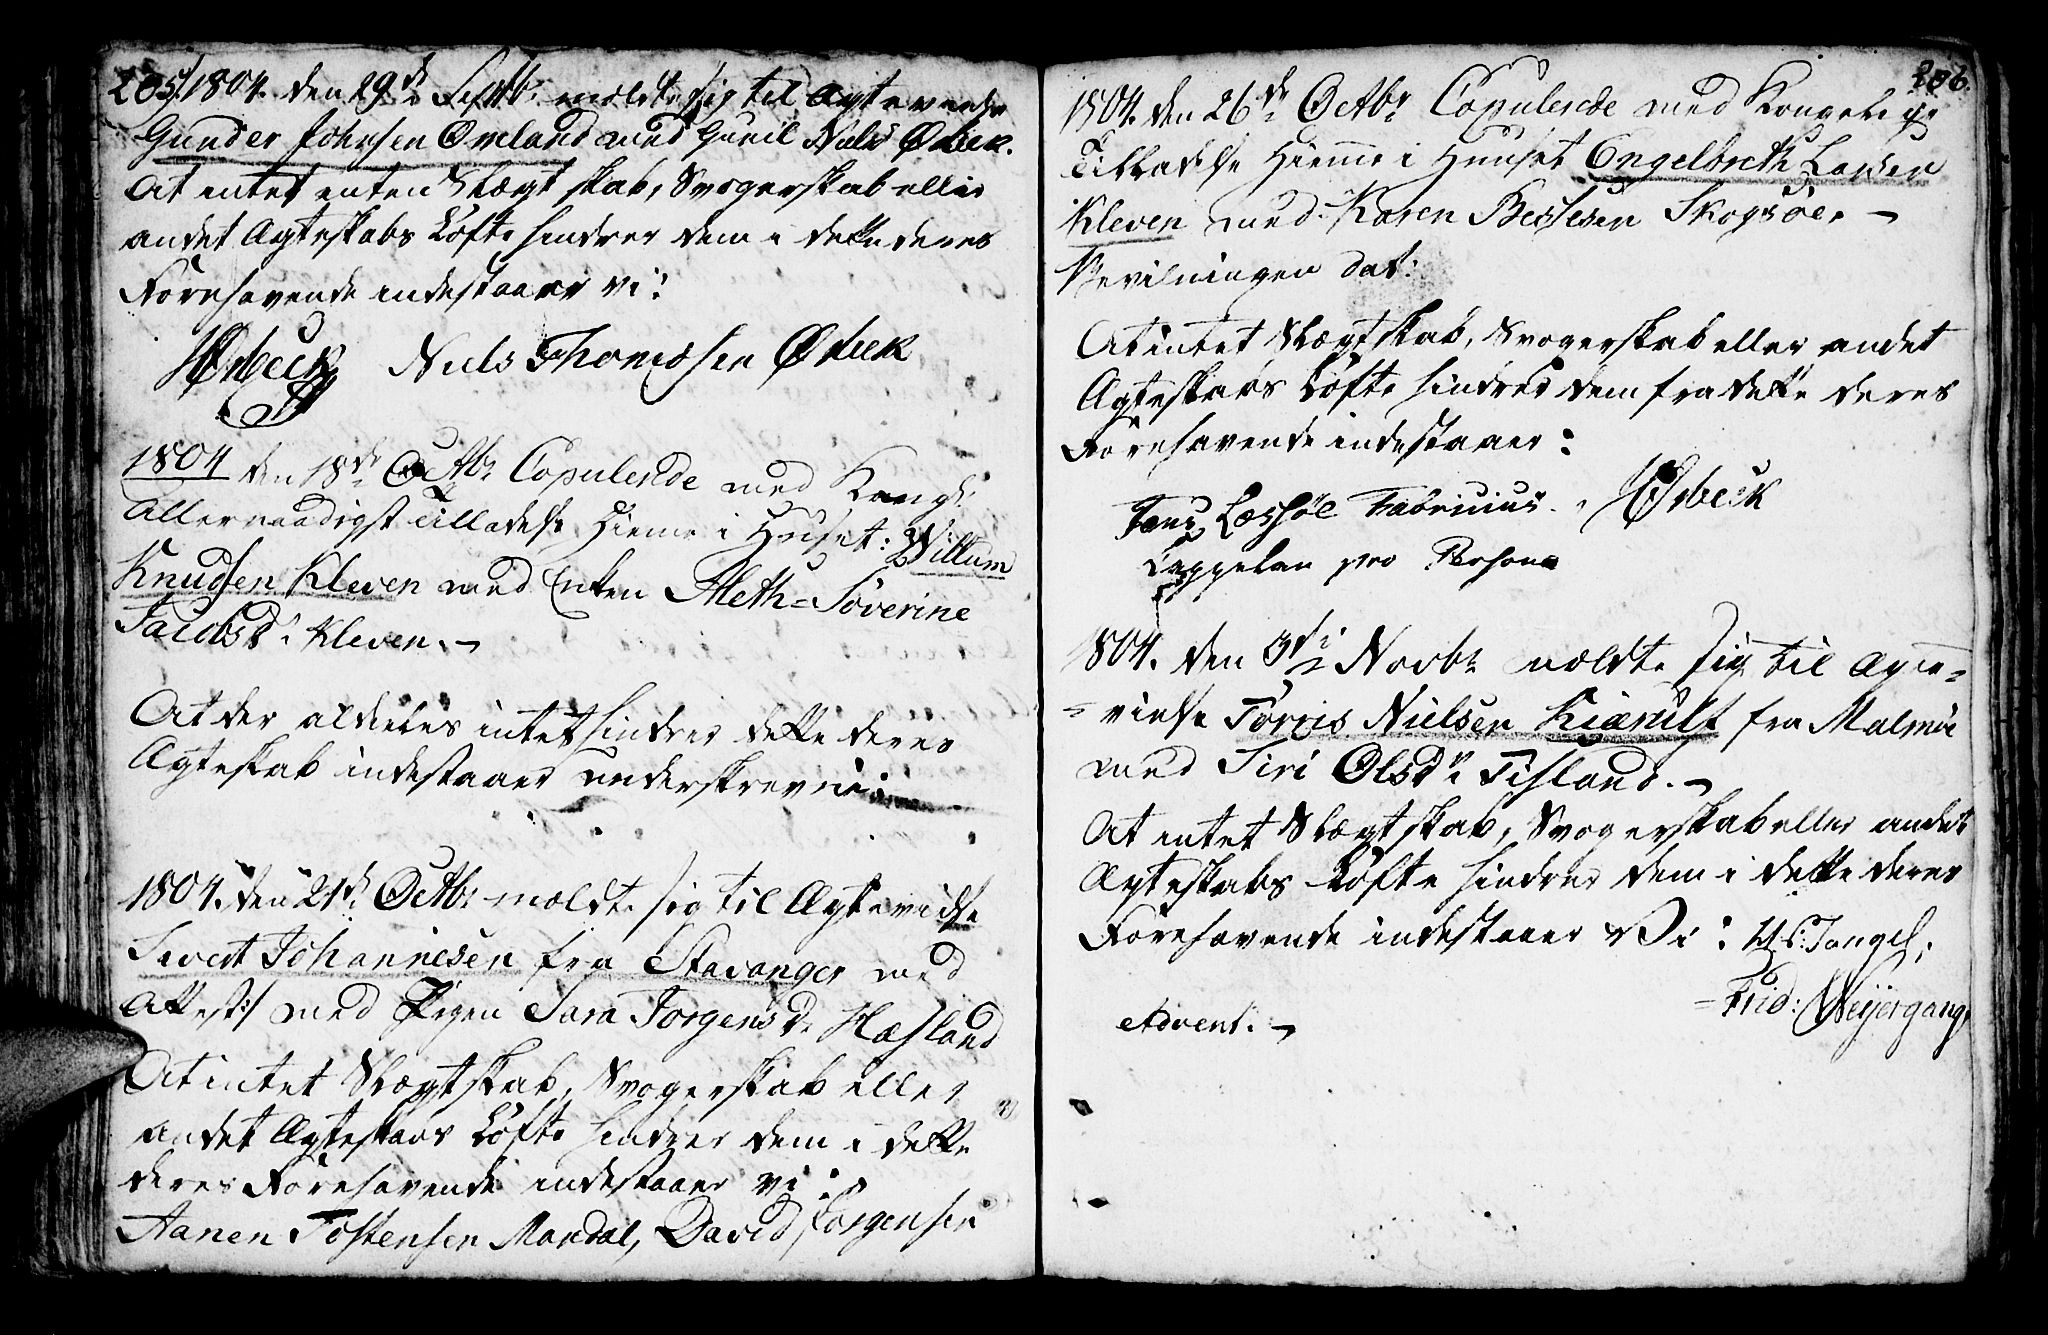 205. 1804. den 29de Septbr meldte sig til Ægtevielse
Gunder Johnsen Øveland med Gunil Niels Øbek.
At intet enten Slægtskab, Svogerskab eller
andet Ægteskabs Løfte hindrer dem i dette deres
Forehavende indestaaer vi:
Niels Thomesen Øbek
1804 den 18de Octbr Copulerede med Kongl:
Allernaadigst Tilladelse Hieme i Huset: Willum
Knudsen Kleven med Enken Aleth=Severine
Jacobsdr Kleven.
At der aldeles intet hindrer dette deres
Ægteskab indestaaer underskrevne:
1804. den 21de Octbr meldte sig til Ægtevielse
Sivert Johannesen fra Stavanger med
Attest:/ med Pigen Sara Jørgensdr Hæsland
At intet Slægtskab, Svogerskab eller
andet Ægteskabs Løfte hindrer dem i dette
deres Forehavende indestaaer vi:
Aanen Tostensen Mandal, David Jørgensen
206.
1804. den 26de Octbr Copulerede med Kongelige
Tilladelse Hieme i Huuset Engelbreth Larsen
Kleven med Karen Berthesen Skogsøe.
Bevilningen dat:
At intet Slægtskab, Svogerskab eller andet
Ægteskabs Løfte hindrer dem fra dette deres
Forehavende indestaaer:
Jens Læssøe Fabricius. Ørbeck
Cappelen pro Persona
1804. den 3die Novbr meldte sig til Ægte=
=vielse Torris Nielsen Kiærulf fra Malmøe
med Siri Olsdr Fisland.
At intet Slægtskab, Svogerskab eller andet
Ægteskabs Løfte hindrer dem i dette deres
Forehavende indestaaer Vi:
Frid: Weyergang
Advent.